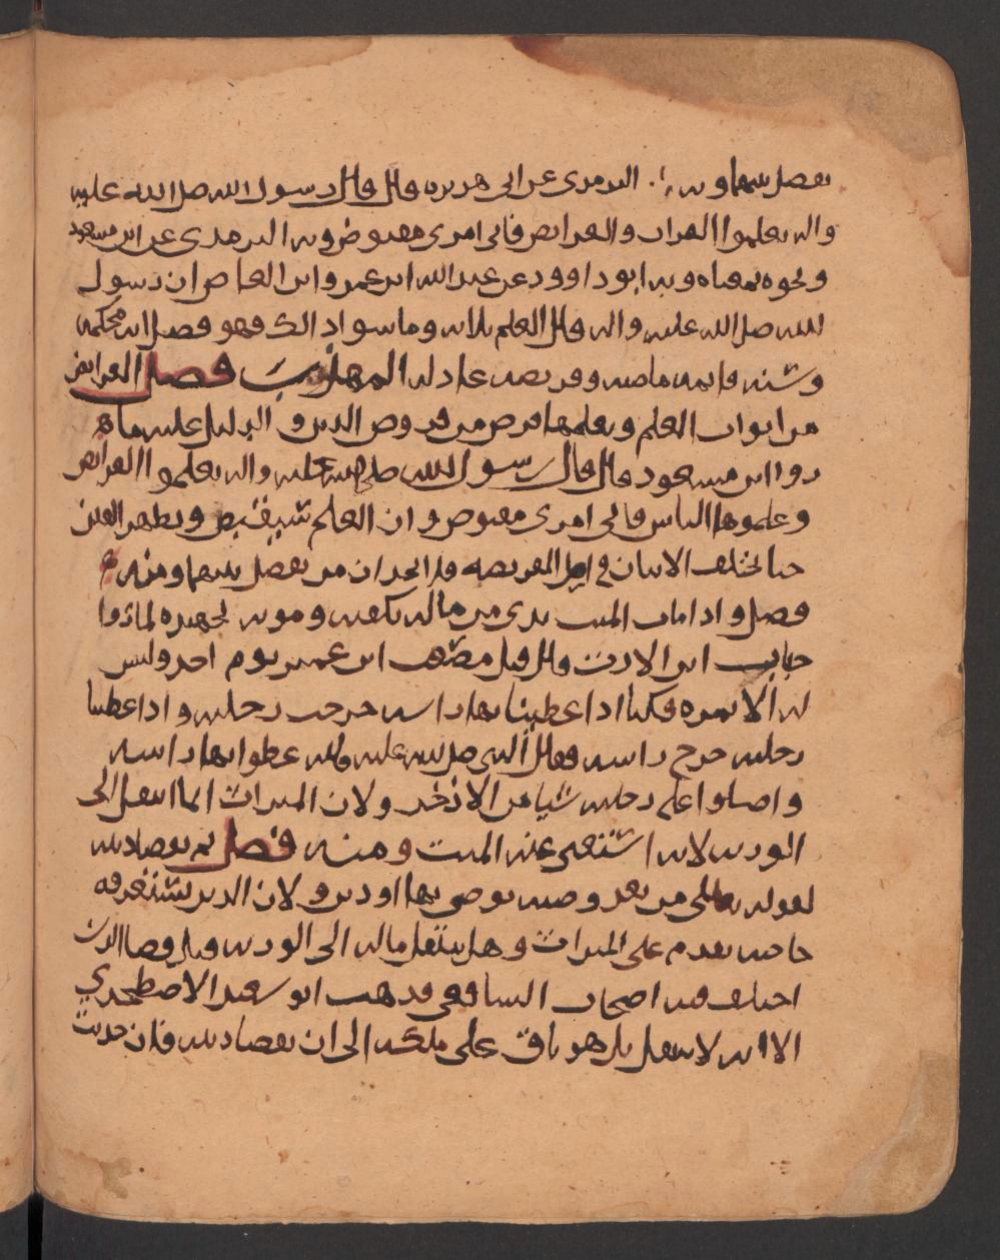 يفصل بينهما وبه الترمذى عن ابى هريره قال قال رسول الله صلى الله عليه
واله تعلموا القران والفرايض فانى امرى مقبوض وبه الترمذى عن ابن مسعود
ونحوه بمعناه وبه ابو داوود عن عبد الله ابن عمر وابن العاص ان رسول
الله صلى الله عليه واله قال العلم ثلاثه وما سوا ذالك فهو فضل ايه محكمه
وسنه قايمه وفريضه عادله المهذب فصل الفرايض
من ابواب العلم وتعلمها فرض من فروض الدين والدليل عليه ما
روا ابن مسعود قال قال رسول الله صلى الله عليه واله تعلموا الفرايض
وعلموها الناس فانى امرى مقبوض وان العلم سيقبض وتظهر الفتن
حتا يختلف الاثنان في الفريضه فلا يجدان من يفصل بينهما ومنه
فصل واذا مات الميت بدى من ماله بكفنه ومونه تجهيزه لما روا
خباب ابن الارت قال قتل مصعب ابن عمير يوم احد وليس
له الا نمره فكنا اذا غطينا بها راسه خرجت رجليه واذا غطينا
رجليه خرج راسه فقال النبى صلى الله عليه واله غطوا بها راسه
واجعلوا على رجليه شيا من الاذخر ولان الميراث انما انتقل الى
الورثه لانه استغنى عنه الميت ومنه فصل ثم يقضا دينه
لقوله تعالى من بعد وصيه يوصى بها او دين ولان الدين تستغرقه
حاجته تقدم على الميراث وهل ينتقل ماله الى الورثه قبل قضا الدين
اختلف فيه اصحاب الشافعى فذهب ابو سعيد الاصطخري
الا انه لا ينتقل بل هو باق على ملكه الى ان يقضا دينه فان حدثت